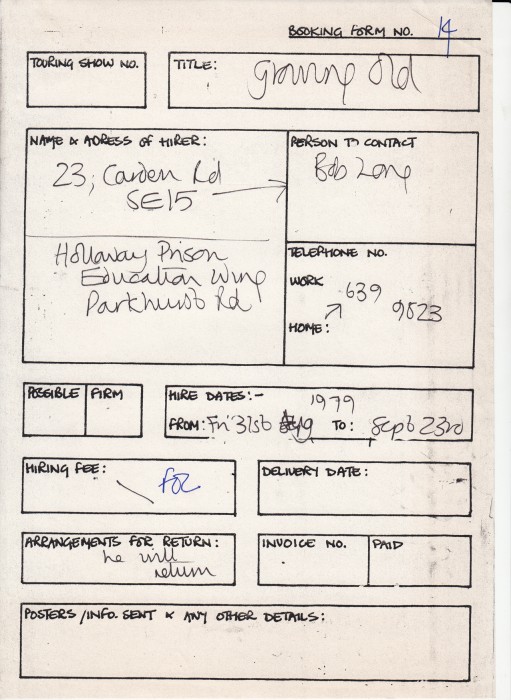 BOOKING FORM NO. 14
TOURING SHOW NO.
TITLE: Growing Old
NAME & ADRESS of HIRER:
23, Carden Rd
SE15
Hollaway Prison
Education Wing
Parkhurst Rd
PERSON TO CONTACT
Bob Long
TELEPHONE NO.
WORK 639 9523
HOME:
POSSIBLE FIRM
HIRE DATES:- 1979
FROM: Fri 31st Aug TO: Sept 23rd
HIRING FEE: FOC
DELIVERY DATE:
ARRANGEMENTS FOR RETURN:
he will
return
INVOICE NO. PAID
POSTERS/INFO. SENT & ANY OTHER DETAILS: